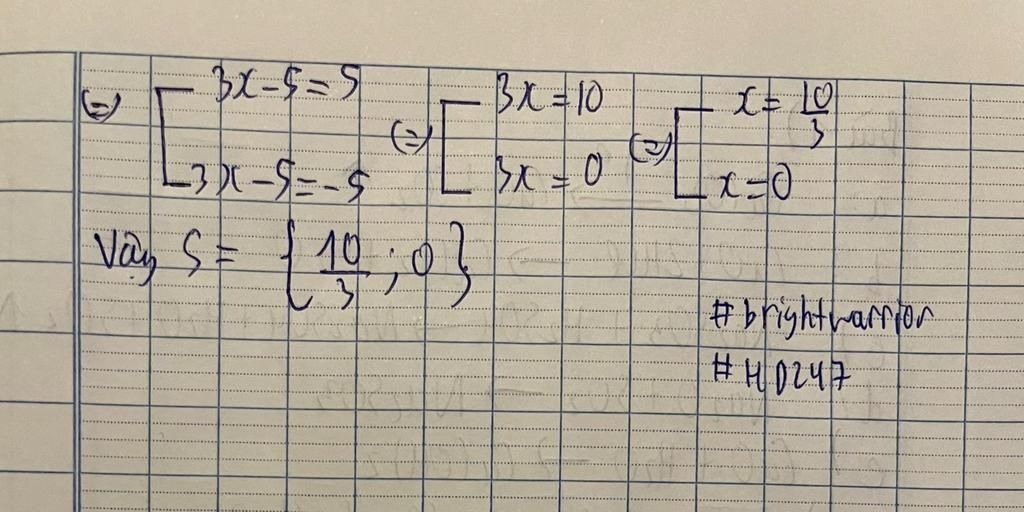 (=) [ 3x-5=5 (=) [ 3x=10 (=) [ x=10/3
3x-5=-5 3x=0 x=0
Vậy S= {10/3; 0}
#brightwarrior
#HD247